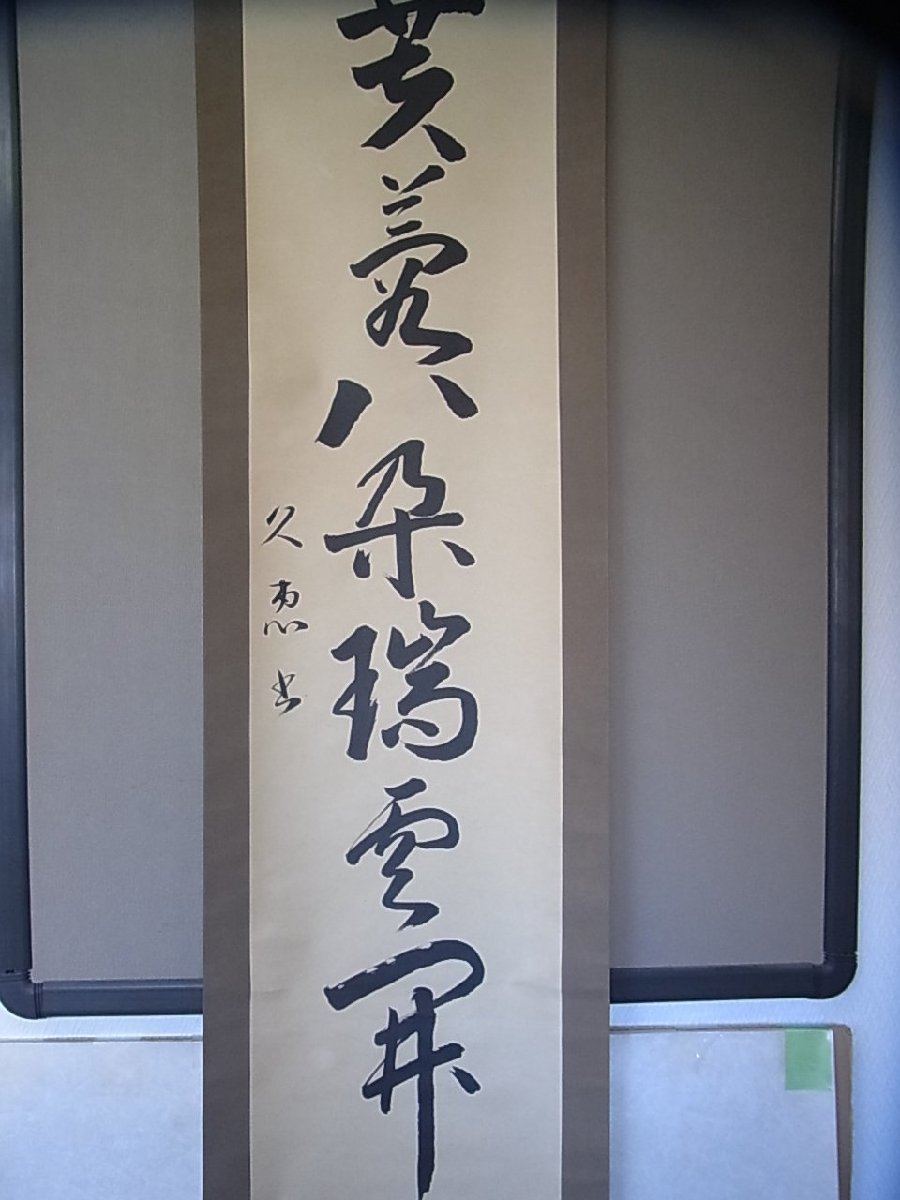 芙蓉八朶瑞雲開
久恵書